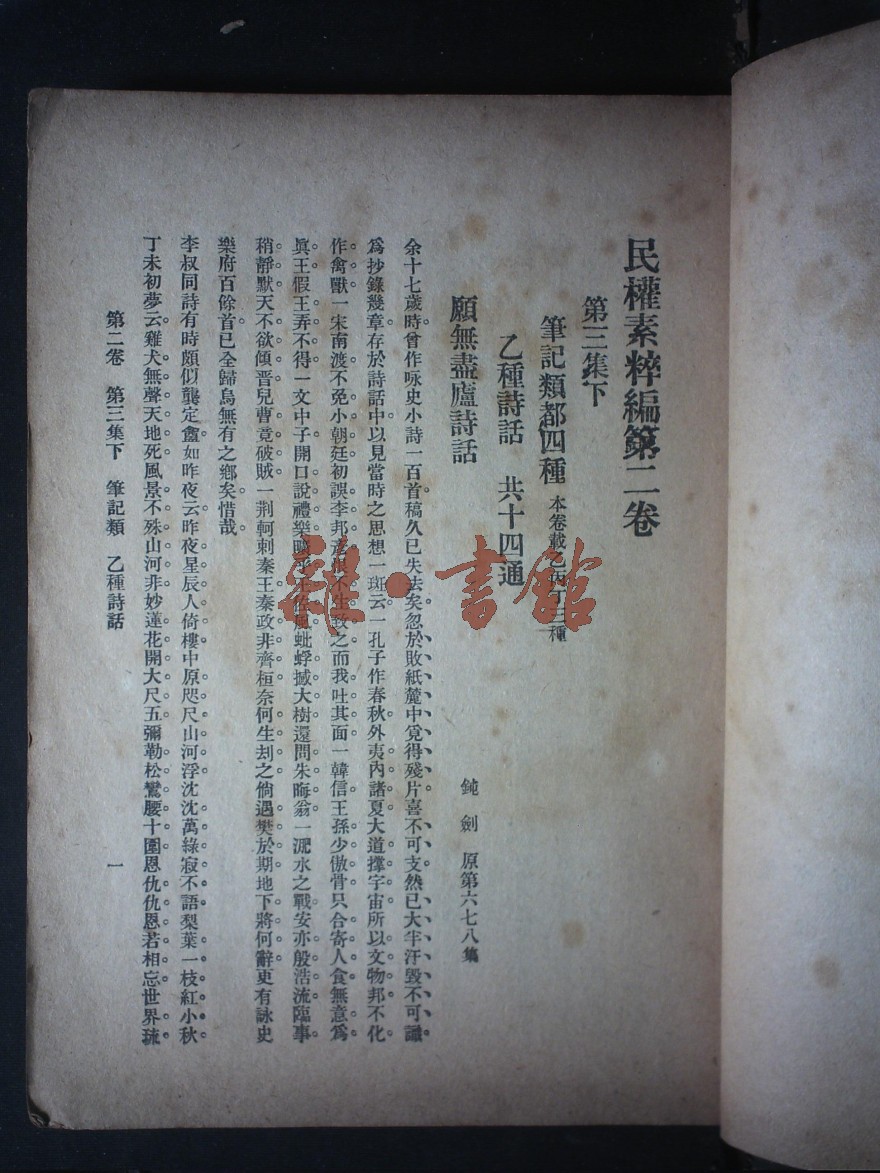 民權素粹編第二卷
第三集下
筆記類都四種 本卷載乙丙丁三種
乙種詩話 共十四通
願無盡廬詩話 鈍劍 原第六七八集
余十七歲時曾作咏史小詩一百首稿久已失去矣忽於敗紙簏中覓得殘片喜不可支然已大半汗毀不可識
爲抄錄幾章存於詩話中以見當時之思想一斑云一孔子作春秋外夷內諸夏大道撑宇宙所以文物邦不化
作禽獸一宋南渡不免小朝廷初誤李邦彥恨不生致之而我吐其面一韓信王孫少傲骨只合寄人食無意爲
眞王假王弄不得一文中子開口說禮樂 蚍蜉撼大樹還問朱晦翁一淝水之戰安亦殷浩流臨事
稍靜默天不欲傾晋兒曹竟破賊一荆軻刺秦王秦政非齊桓奈何生刦之倘遇樊於期地下將何辭更有詠史
樂府百餘首已全歸烏無有之鄉矣惜哉
李叔同詩有時頗似龔定盦如昨夜云昨夜星辰人倚樓中原咫尺山河浮沈沈萬綠寂不語梨葉一枝紅小秋
丁未初夢云雞犬無聲天地死風景不殊山河非妙蓮花開大尺五彌勒松鸞腰十圍恩仇仇恩若相忘世界琉
第二卷 第三集下 筆記類 乙種詩話 一
雜·書館